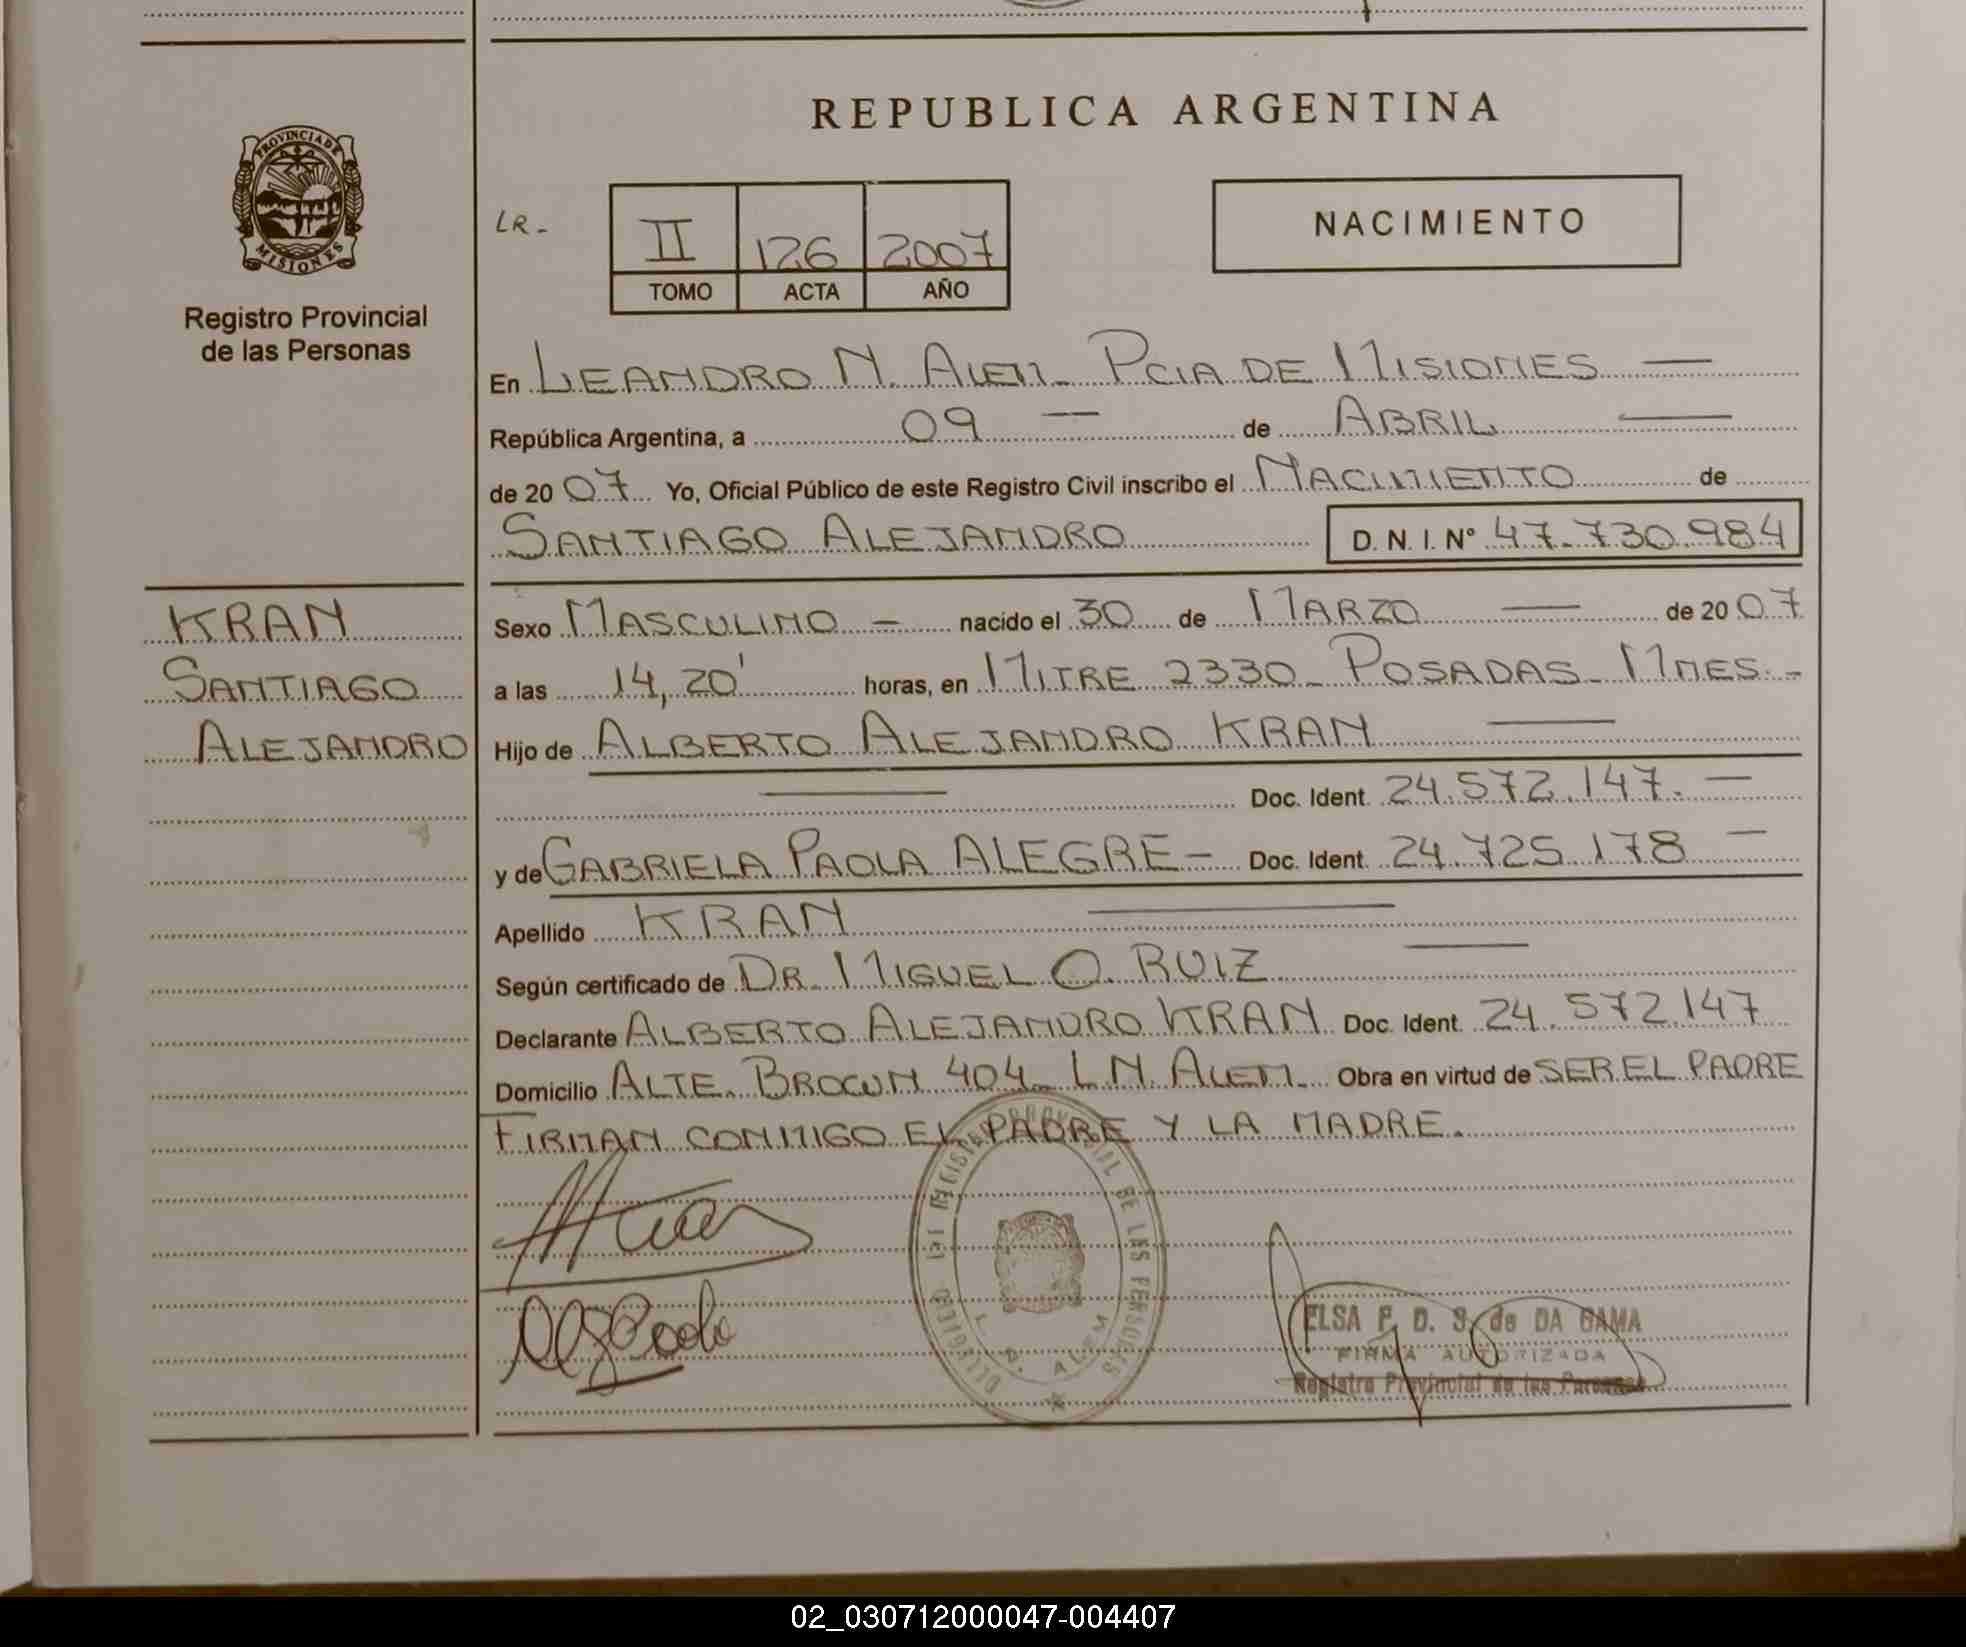 REPUBLICA ARGENTINA
PROVINCIA DE
MISIONES
Registro Provincial
de las Personas
LR.-
II 126 2007
TOMO ACTA AÑO
NACIMIENTO
En LEANDRO N. ALEM- PCIA DE MISIONES —
República Argentina, a 09 — de ABRIL —
de 2007 Yo, Oficial Público de este Registro Civil inscribo el NACIMIENTO de
SANTIAGO ALEJANDRO D. N. I. Nº 47.730.984
KRAN
SANTIAGO
ALEJANDRO
Sexo MASCULINO — nacido el 30 de MARZO — de 2007
a las 14,20' horas, en MITRE 2330- POSADAS- MNES.-
Hijo de ALBERTO ALEJANDRO KRAN —
— Doc. Ident. 24.572.147. —
y de GABRIELA PAOLA ALEGRE — Doc. Ident. 24.725.178 —
Apellido KRAN —
Según certificado de DR. MIGUEL O. RUIZ —
Declarante ALBERTO ALEJANDRO KRAN Doc. Ident. 24.572.147
Domicilio ALTE. BROWN 404- L N. ALEM. Obra en virtud de SER EL PADRE
FIRMAN CONMIGO EL PADRE Y LA MADRE.
REGISTRO PROVINCIAL DE LAS PERSONAS
L. N. ALEM
ELSA F. D. S. de DA GAMA
FIRMA AUTORIZADA
Registro Provincial de las Personas
02_030712000047-004407